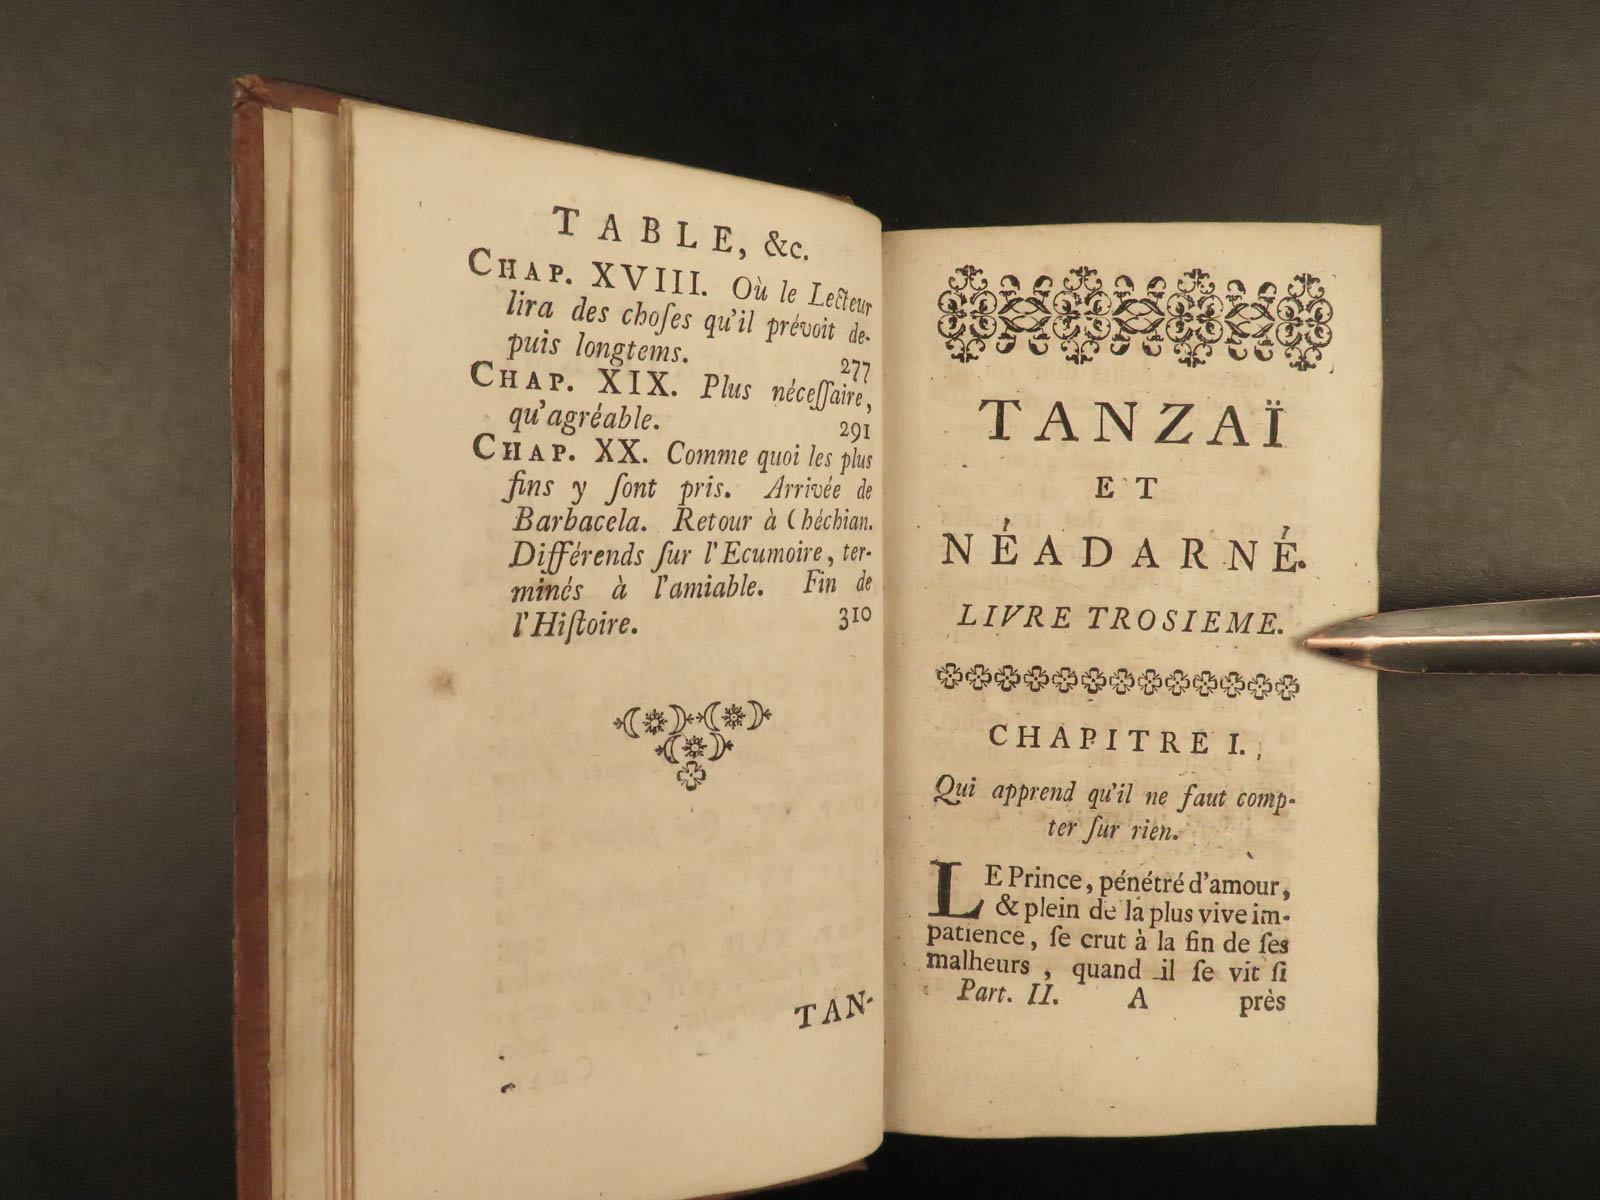 TABLE, &c.
CHAP. XVIII. Où le Lecteur
lira des choſes qu'il prévoit de-
puis longtems. 277
CHAP. XIX. Plus néceſſaire,
qu'agréable. 291
CHAP. XX. Comme quoi les plus
fins y ſont pris. Arrivée de
Barbacela. Retour à Chéchian.
Différends ſur l'Ecumoire, ter-
minés à l'amiable. Fin de
l'Hiſtoire. 310
TAN-
TANZAÏ
ET
NÉADARNÉ.
LIVRE TROSIEME.
CHAPITRE I.
Qui apprend qu'il ne faut comp-
ter ſur rien.
LE Prince, pénétré d'amour,
& plein de la plus vive im-
patience, ſe crut à la fin de ſes
malheurs, quand il ſe vit ſi
Part. II. A près